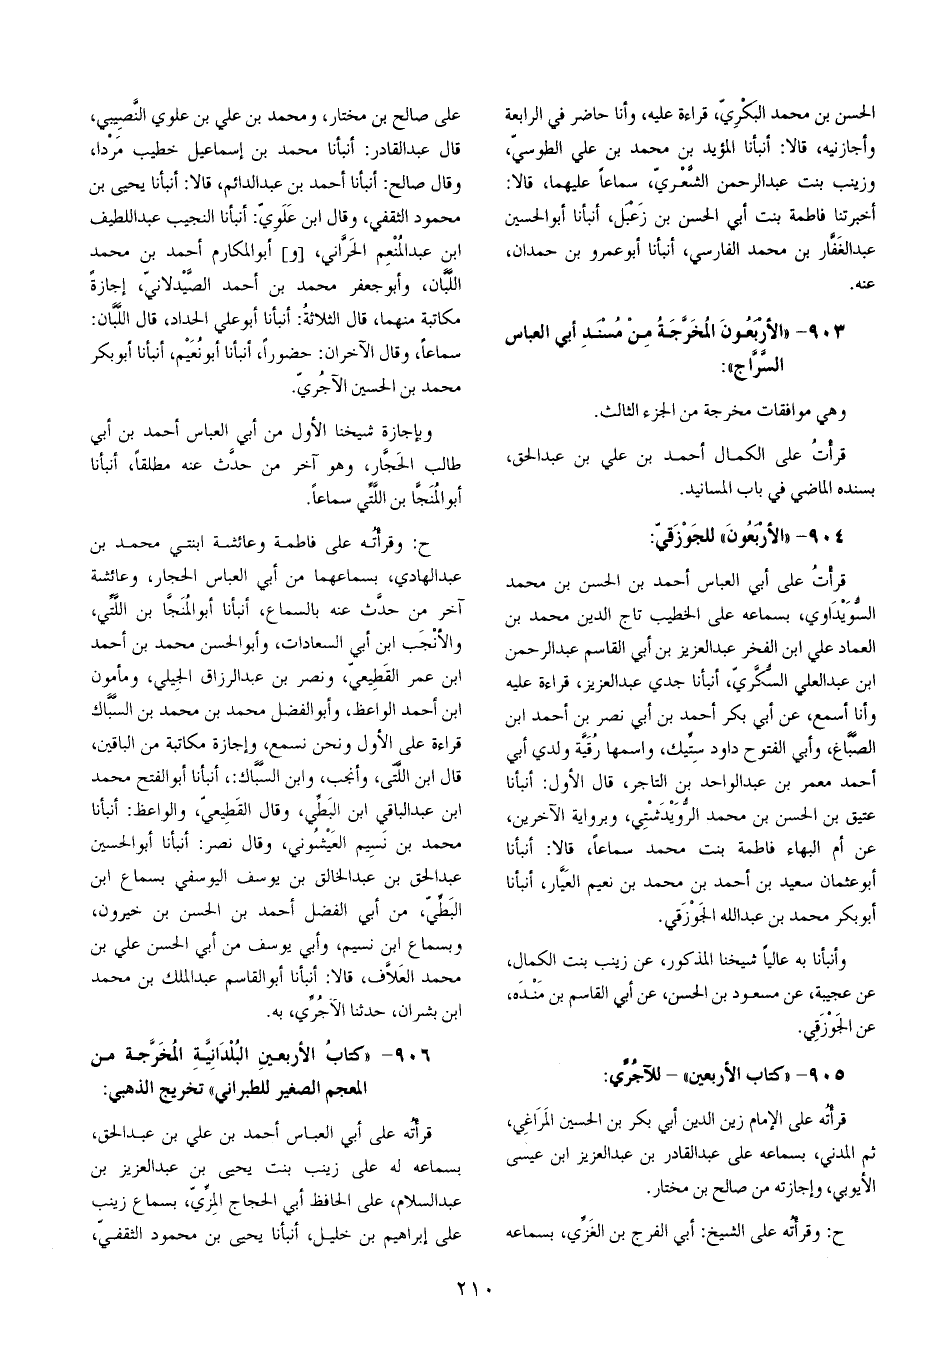 الحسن بن محمد البَكْرِيّ، قراءة عليه، وأنا حاضر في الرابعة
وأجازنيه، قالا: أنبأنا المؤيد بن محمد بن علي الطوسيّ،
وزينب بنت عبدالرحمن الشَّعْريّ، سماعاً عليهما، قالا:
أخبرتنا فاطمة بنت أبي الحسن بن زَعْبَل، أنبأنا أبوالحسين
عبدالغَفَّار بن محمد الفارسي، أنبأنا أبوعمرو بن حمدان،
عنه.
٩٠٣- «الأرْبَعُونَ المُخَرَّجَةُ مِنْ مُسْنَدِ أبي العباس
السَّرَّاج»:
وهي موافقات مخرجة من الجزء الثالث.
قرأتُ على الكمال أحمد بن علي بن عبدالحق،
بسنده الماضي في باب المسانيد.
٩٠٤- «الأرْبَعُونَ» للجَوْزَقيّ:
قرأتُ على أبي العباس أحمد بن الحسن بن محمد
السُّوَيْدَاوي، بسماعه على الخطيب تاج الدين محمد بن
العماد علي ابن الفخر عبدالعزيز بن أبي القاسم عبدالرحمن
ابن عبدالعلي السُّكَّريّ، أنبأنا جدي عبدالعزيز، قراءة عليه
وأنا أسمع، عن أبي بكر أحمد بن أبي نصر بن أحمد ابن
الصَّبَّاغ، وأبي الفتوح داود ستِّيك، واسمها رُقيَّة ولدي أبي
أحمد معمر بن عبدالواحد بن التاجر، قال الأول: أنبأنا
عتيق بن الحسن بن محمد الرُّوَيْدَشْتِي، وبرواية الآخرين،
عن أم البهاء فاطمة بنت محمد سماعاً، قالا: أنبأنا
أبوعثمان سعيد بن أحمد بن محمد بن نعيم العَيَّار، أنبأنا
أبوبكر محمد بن عبدالله الجَوْزَقي.
وأنبأنا به عالياً شيخنا المذكور، عن زينب بنت الكمال،
عن عجيبة، عن مسعود بن الحسن، عن أبي القاسم بن مَنْدَه،
عن الجَوْزَقِي.
٩٠٥- «كتاب الأربعين» - للآجُرِّي:
قرأتُه على الإمام زين الدين أبي بكر بن الحسين المَرَاغي،
ثم المدني، بسماعه على عبدالقادر بن عبدالعزيز ابن عيسى
الأيوبي، وإجازته من صالح بن مختار.
ح: وقرأتُه على الشيخ: أبي الفرج بن الغَزِّي، بسماعه
على صالح بن مختار، ومحمد بن علي بن علوي النَّصِيبي،
قال عبدالقادر: أنبأنا محمد بن إسماعيل خطيب مَرْدا،
وقال صالح: أنبأنا أحمد بن عبدالدائم، قالا: أنبأنا يحيى بن
محمود الثقفي، وقال ابن عَلَويّ: أنبأنا النجيب عبداللطيف
ابن عبدالمُنْعِم الحَرَّاني، [و] أبوالمكارم أحمد بن محمد
اللَّبَّان، وأبوجعفر محمد بن أحمد الصَّيْدلانيّ، إجازةً
مكاتبة منهما، قال الثلاثةُ: أنبأنا أبوعلي الحداد، قال اللَّبَّان:
سماعاً، وقال الآخران: حضوراً، أنبأنا أبونُعَيْم، أنبأنا أبوبكر
محمد بن الحسين الآجُريّ.
وبإجازة شيخنا الأول من أبي العباس أحمد بن أبي
طالب الحَجَّار، وهو آخر من حدَّث عنه مطلقاً، أنبأنا
أبوالمُنَجَّا بن اللَّتِّي سماعاً.
ح: وقرأتُه على فاطمة وعائشة ابنتي محمد بن
عبدالهادي، بسماعهما من أبي العباس الحجار، وعائشة
آخر من حدَّث عنه بالسماع، أنبأنا أبوالمُنَجَّا بن اللَّتِّي،
والأنْجَب ابن أبي السعادات، وأبوالحسن محمد بن أحمد
ابن عمر القَطِيعيّ، ونصر بن عبدالرزاق الجِيلي، ومأمون
ابن أحمد الواعظ، وأبوالفضل محمد بن محمد بن السَّبَّاك
قراءة على الأول ونحن نسمع، وإجازة مكاتبة من الباقين،
قال ابن اللَّتَّى، وأنجب، وابن السبَّاك:، أنبأنا أبوالفتح محمد
ابن عبدالباقي ابن البَطِّي، وقال القَطِيعيّ، والواعظ: أنبأنا
محمد بن نَسِيم العَيْشُوني، وقال نصر: أنبأنا أبوالحسين
عبدالحق بن عبدالخالق بن يوسف اليوسفي بسماع ابن
البَطِّيّ، من أبي الفضل أحمد بن الحسن بن خيرون،
وبسماع ابن نسيم، وأبي يوسف من أبي الحسن علي بن
محمد العَلاَّف، قالا: أنبأنا أبوالقاسم عبدالملك بن محمد
ابن بشران، حدثنا الآجُرِّي، به.
٩٠٦- «كتابُ الأربعينِ البُلْدَانِيَّةِ المُخَرَّجة من
المعجم الصغير للطبراني» تخريج الذهبي:
قرأتُه على أبي العباس أحمد بن علي بن عبدالحق،
بسماعه له على زينب بنت يحيى بن عبدالعزيز بن
عبدالسلام، على الحافظ أبي الحجاج المِزِّيّ، بسماع زينب
على إبراهيم بن خليل، أنبأنا يحيى بن محمود الثقفيّ،
٢١٠